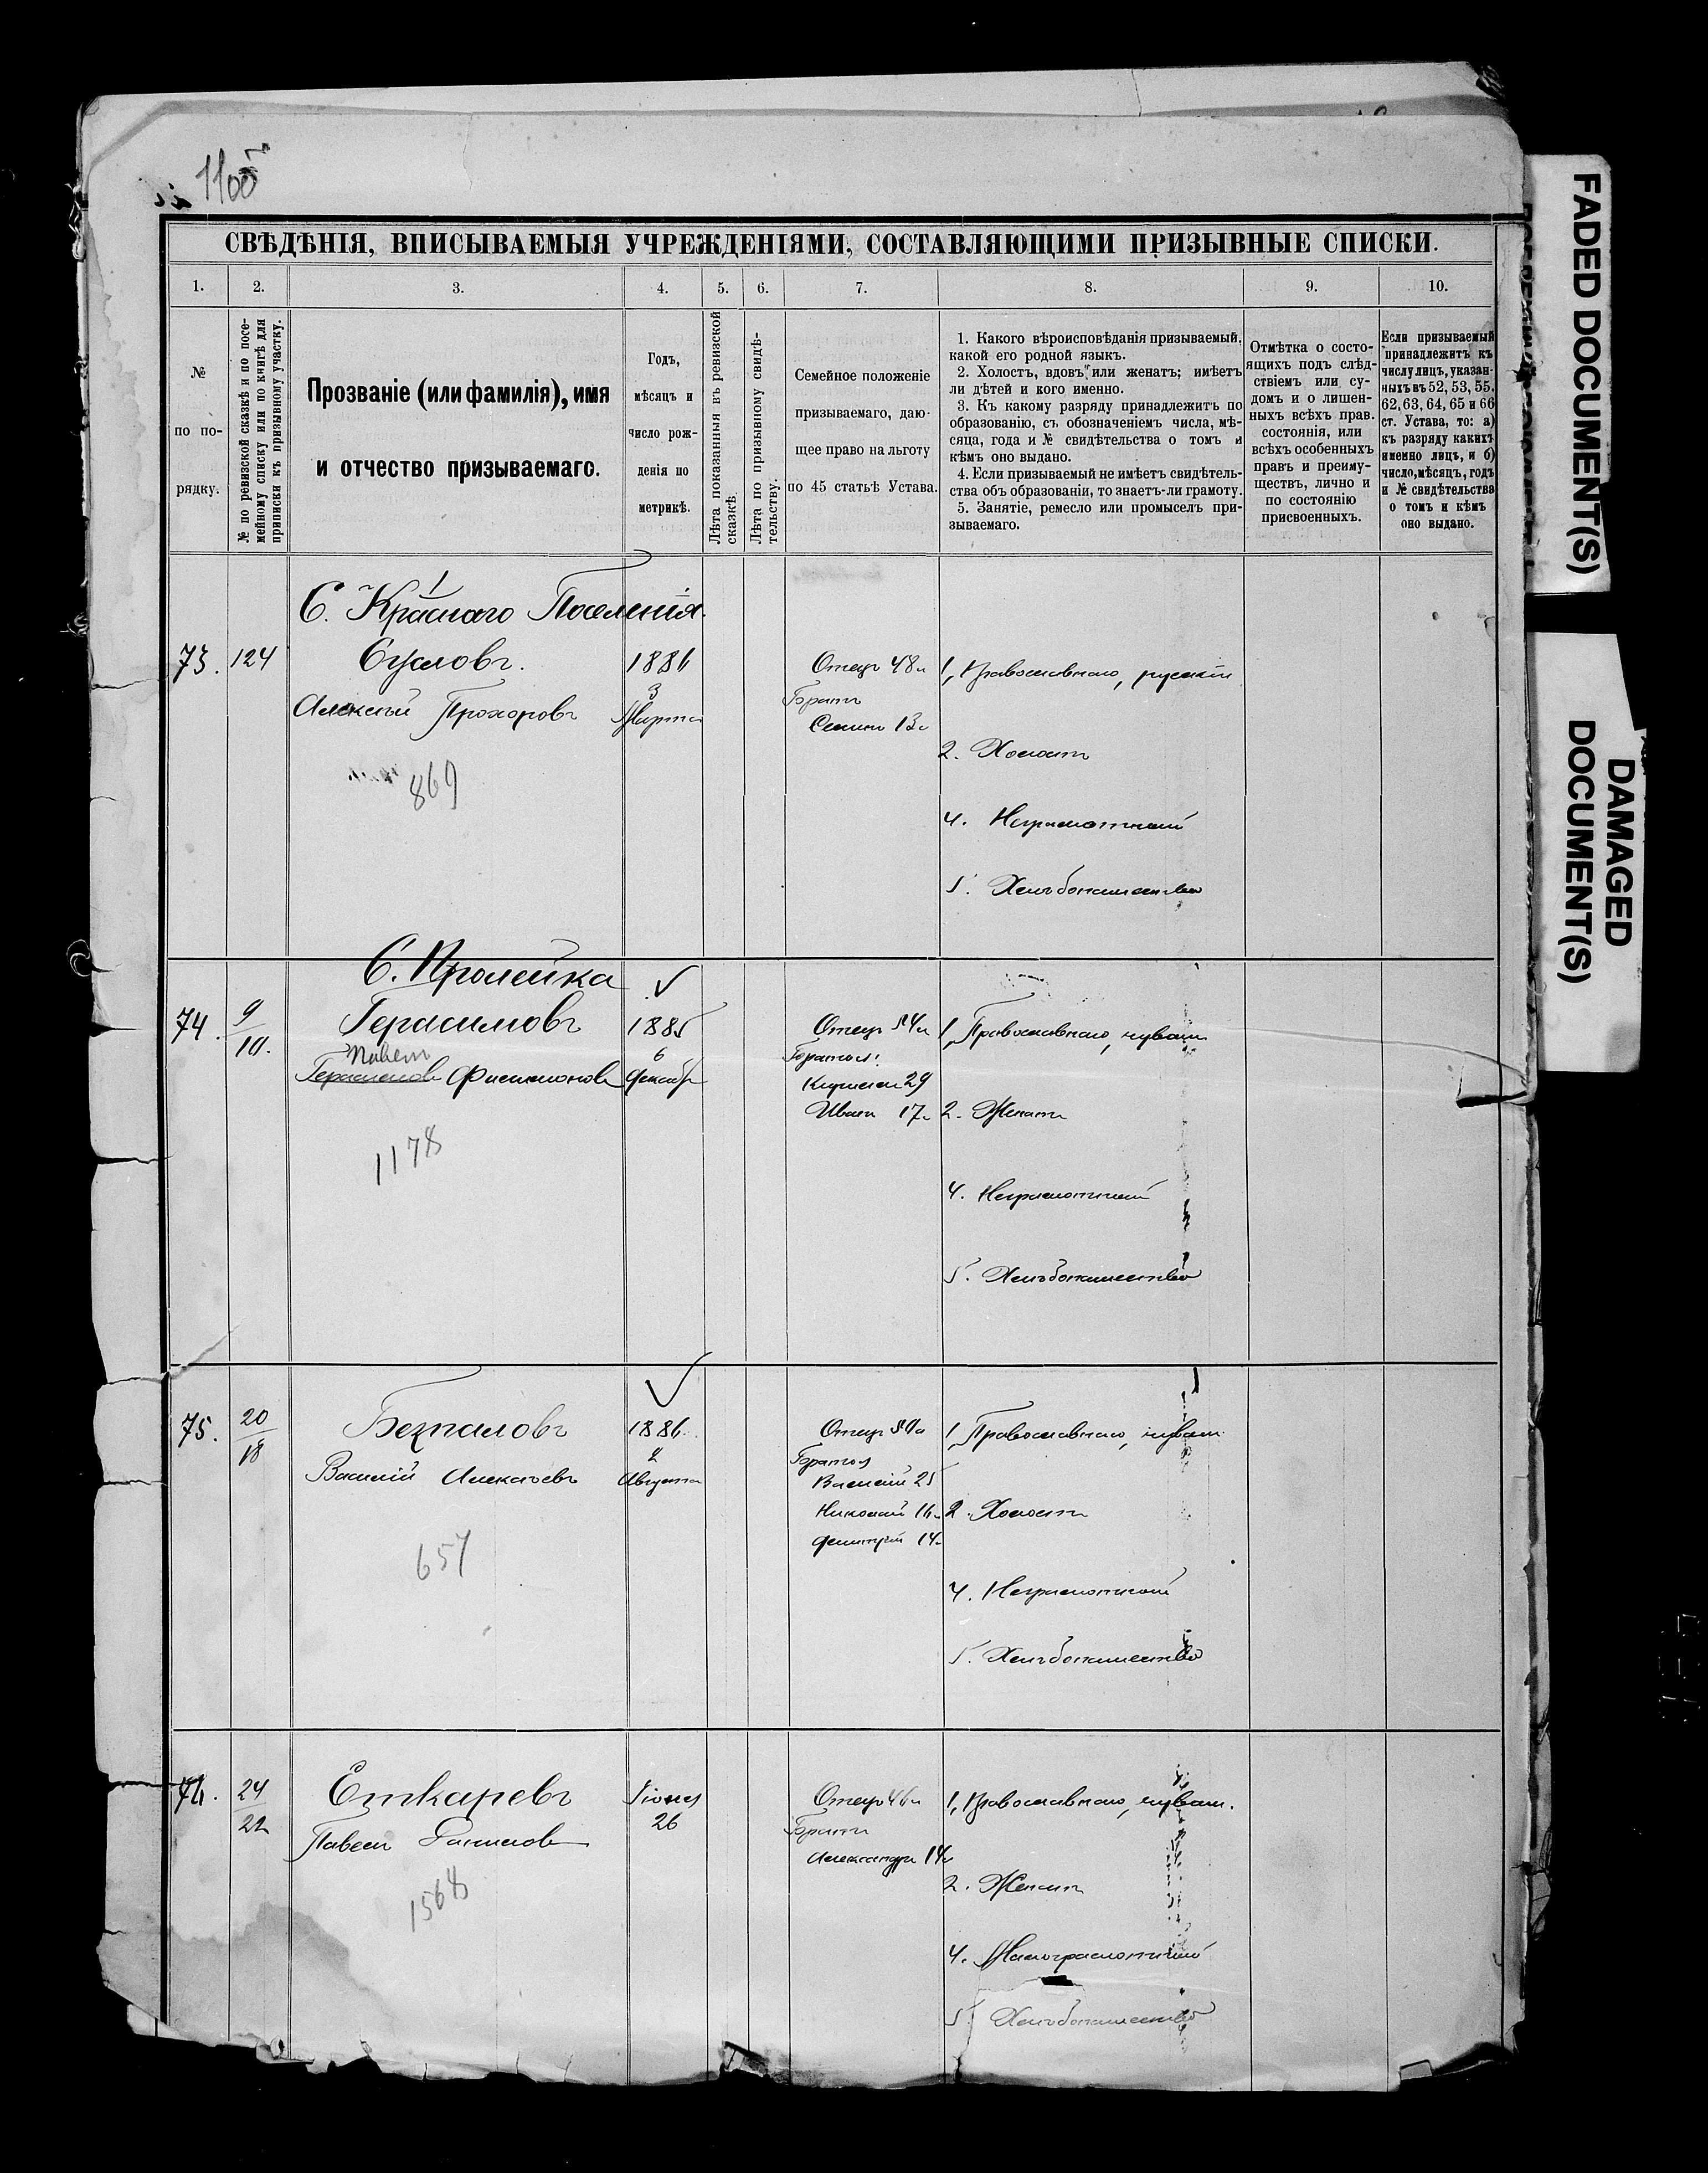 1100
СВѢДѢНІЯ, ВПИСЫВАЕМЫЯ УЧРЕЖДЕНІЯМИ, СОСТАВЛЯЮЩИМИ ПРИЗЫВНЫЕ СПИСКИ.
1. 2. 3. 4. 5. 6. 7. 8. 9. 10.
№
по по-
рядку.
№ по ревизской сказкѣ и по посе-
мейному списку или по книгѣ для
приписки къ призывному участку.
Прозваніе (или фамилія), имя
и отчество призываемаго.
Годъ,
мѣсяцъ и
число рож-
денія по
метрикѣ.
Лѣта показанныя въ ревизской
сказкѣ.
Лѣта по призывному свидѣ-
тельству.
Семейное положеніе
призываемаго, даю-
щее право на льготу
по 45 статьѣ Устава.
1. Какого вѣроисповѣданія призываемый,
какой его родной языкъ.
2. Холостъ, вдовъ или женатъ; имѣетъ
ли дѣтей и кого именно.
3. Къ какому разряду принадлежитъ по
образованію, съ обозначеніемъ числа, мѣ-
сяца, года и № свидѣтельства о томъ и
кѣмъ оно выдано.
4. Если призываемый не имѣетъ свидѣтель-
ства объ образованіи, то знаетъ-ли грамоту.
5. Занятіе, ремесло или промыселъ при-
зываемаго.
Отмѣтка о состо-
ящихъ подъ слѣд-
ствіемъ или су-
домъ и о лишен-
ныхъ всѣхъ прав.
состоянія, или
всѣхъ особенныхъ
правъ и преиму-
ществъ, лично и
по состоянію
присвоенныхъ.
Если призываемый
принадлежитъ къ
числу лицъ, указан-
ныхъ въ 52, 53, 55,
62, 63, 64, 65 и 66
ст. Устава, то: а)
къ разряду какихъ
именно лицъ, и б)
число, мѣсяцъ, годъ
и № свидѣтельства
о томъ и кѣмъ
оно выдано.
С. Краснаго Поселенія.
73. 124 Сусловъ. 1886 Отецъ 48 л 1, Православнаго, русскій
Алексѣй Прохоровъ 3 Марта Братъ
Семенъ 13 л
2. Холостъ
869
4. Неграмотный
5. Хлѣбопашество
С. Пролейка
74. 9/10. Герасимовъ 1885 Отецъ 54 л 1, Православнаго, чуваш
Павелъ
Герасимовъ Филимоновъ 6 Декабр Братья:
29
Иванъ 17 л 2. Женатъ
1178
4. Неграмотный
5. Хлѣбопашество
75. 20/18 1886. Отецъ 1, Православнаго, чуваш
Василій Алексѣевъ 2 Августа Братья
Василій 25
Николай 16 л 2. Холостъ
Дмитрій 14 л
657
4. Неграмотный
5. Хлѣбопашество
76. 24/22 Еткаревъ Іюня Отецъ 46 л 1, Православнаго, чуваш.
Павелъ Даниловъ 26 Братъ
Александръ 14 л
2. Женатъ
1568
4. Малограмотный
5. Хлѣбопашество
FADED DOCUMENT(S)
DAMAGED
DOCUMENT(S)